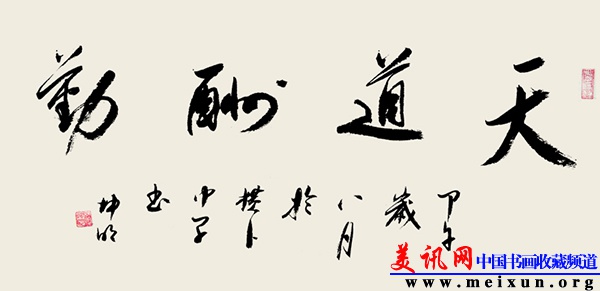 天道酬勤
甲午
歲
八月
於
小子
书
坤明
美讯网 中国书画收藏频道
www.meixun.org